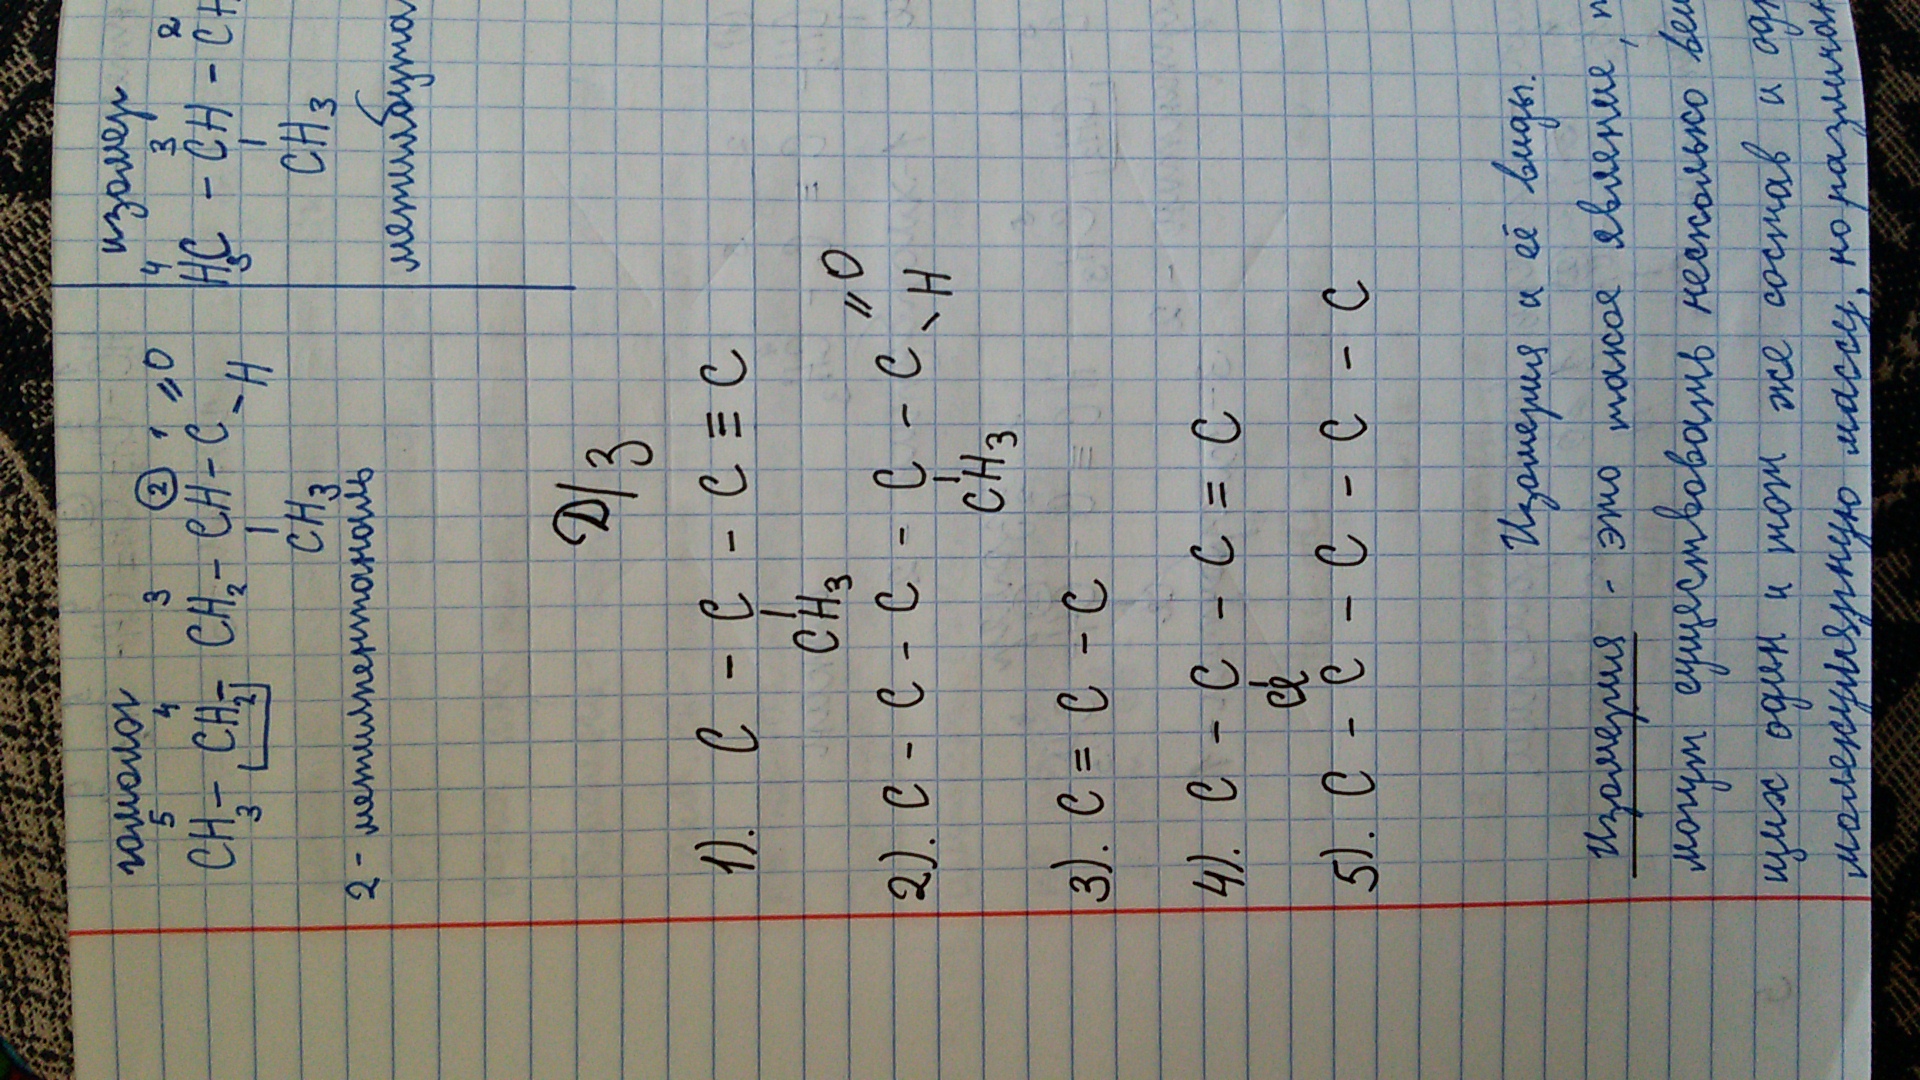 гомолог
5 4 3 2 1
CH3 - CH2 - CH2 - CH - C =O - H
CH3
2 - метилпентаналь
изомер
4 3 2
H3C - CH - CH
CH3
Д/З
1). C - C - C - C ≡ C
CH3
2). C - C - C - C - C =O - H
CH3
3). C = C - C
4). C - C - C = C
Cl
5). C - C - C - C - C
Изомерия и её виды.
Изомерия - это такое явление,
могут существовать несколько
щих один и тот же состав и
молекулярную массу, но